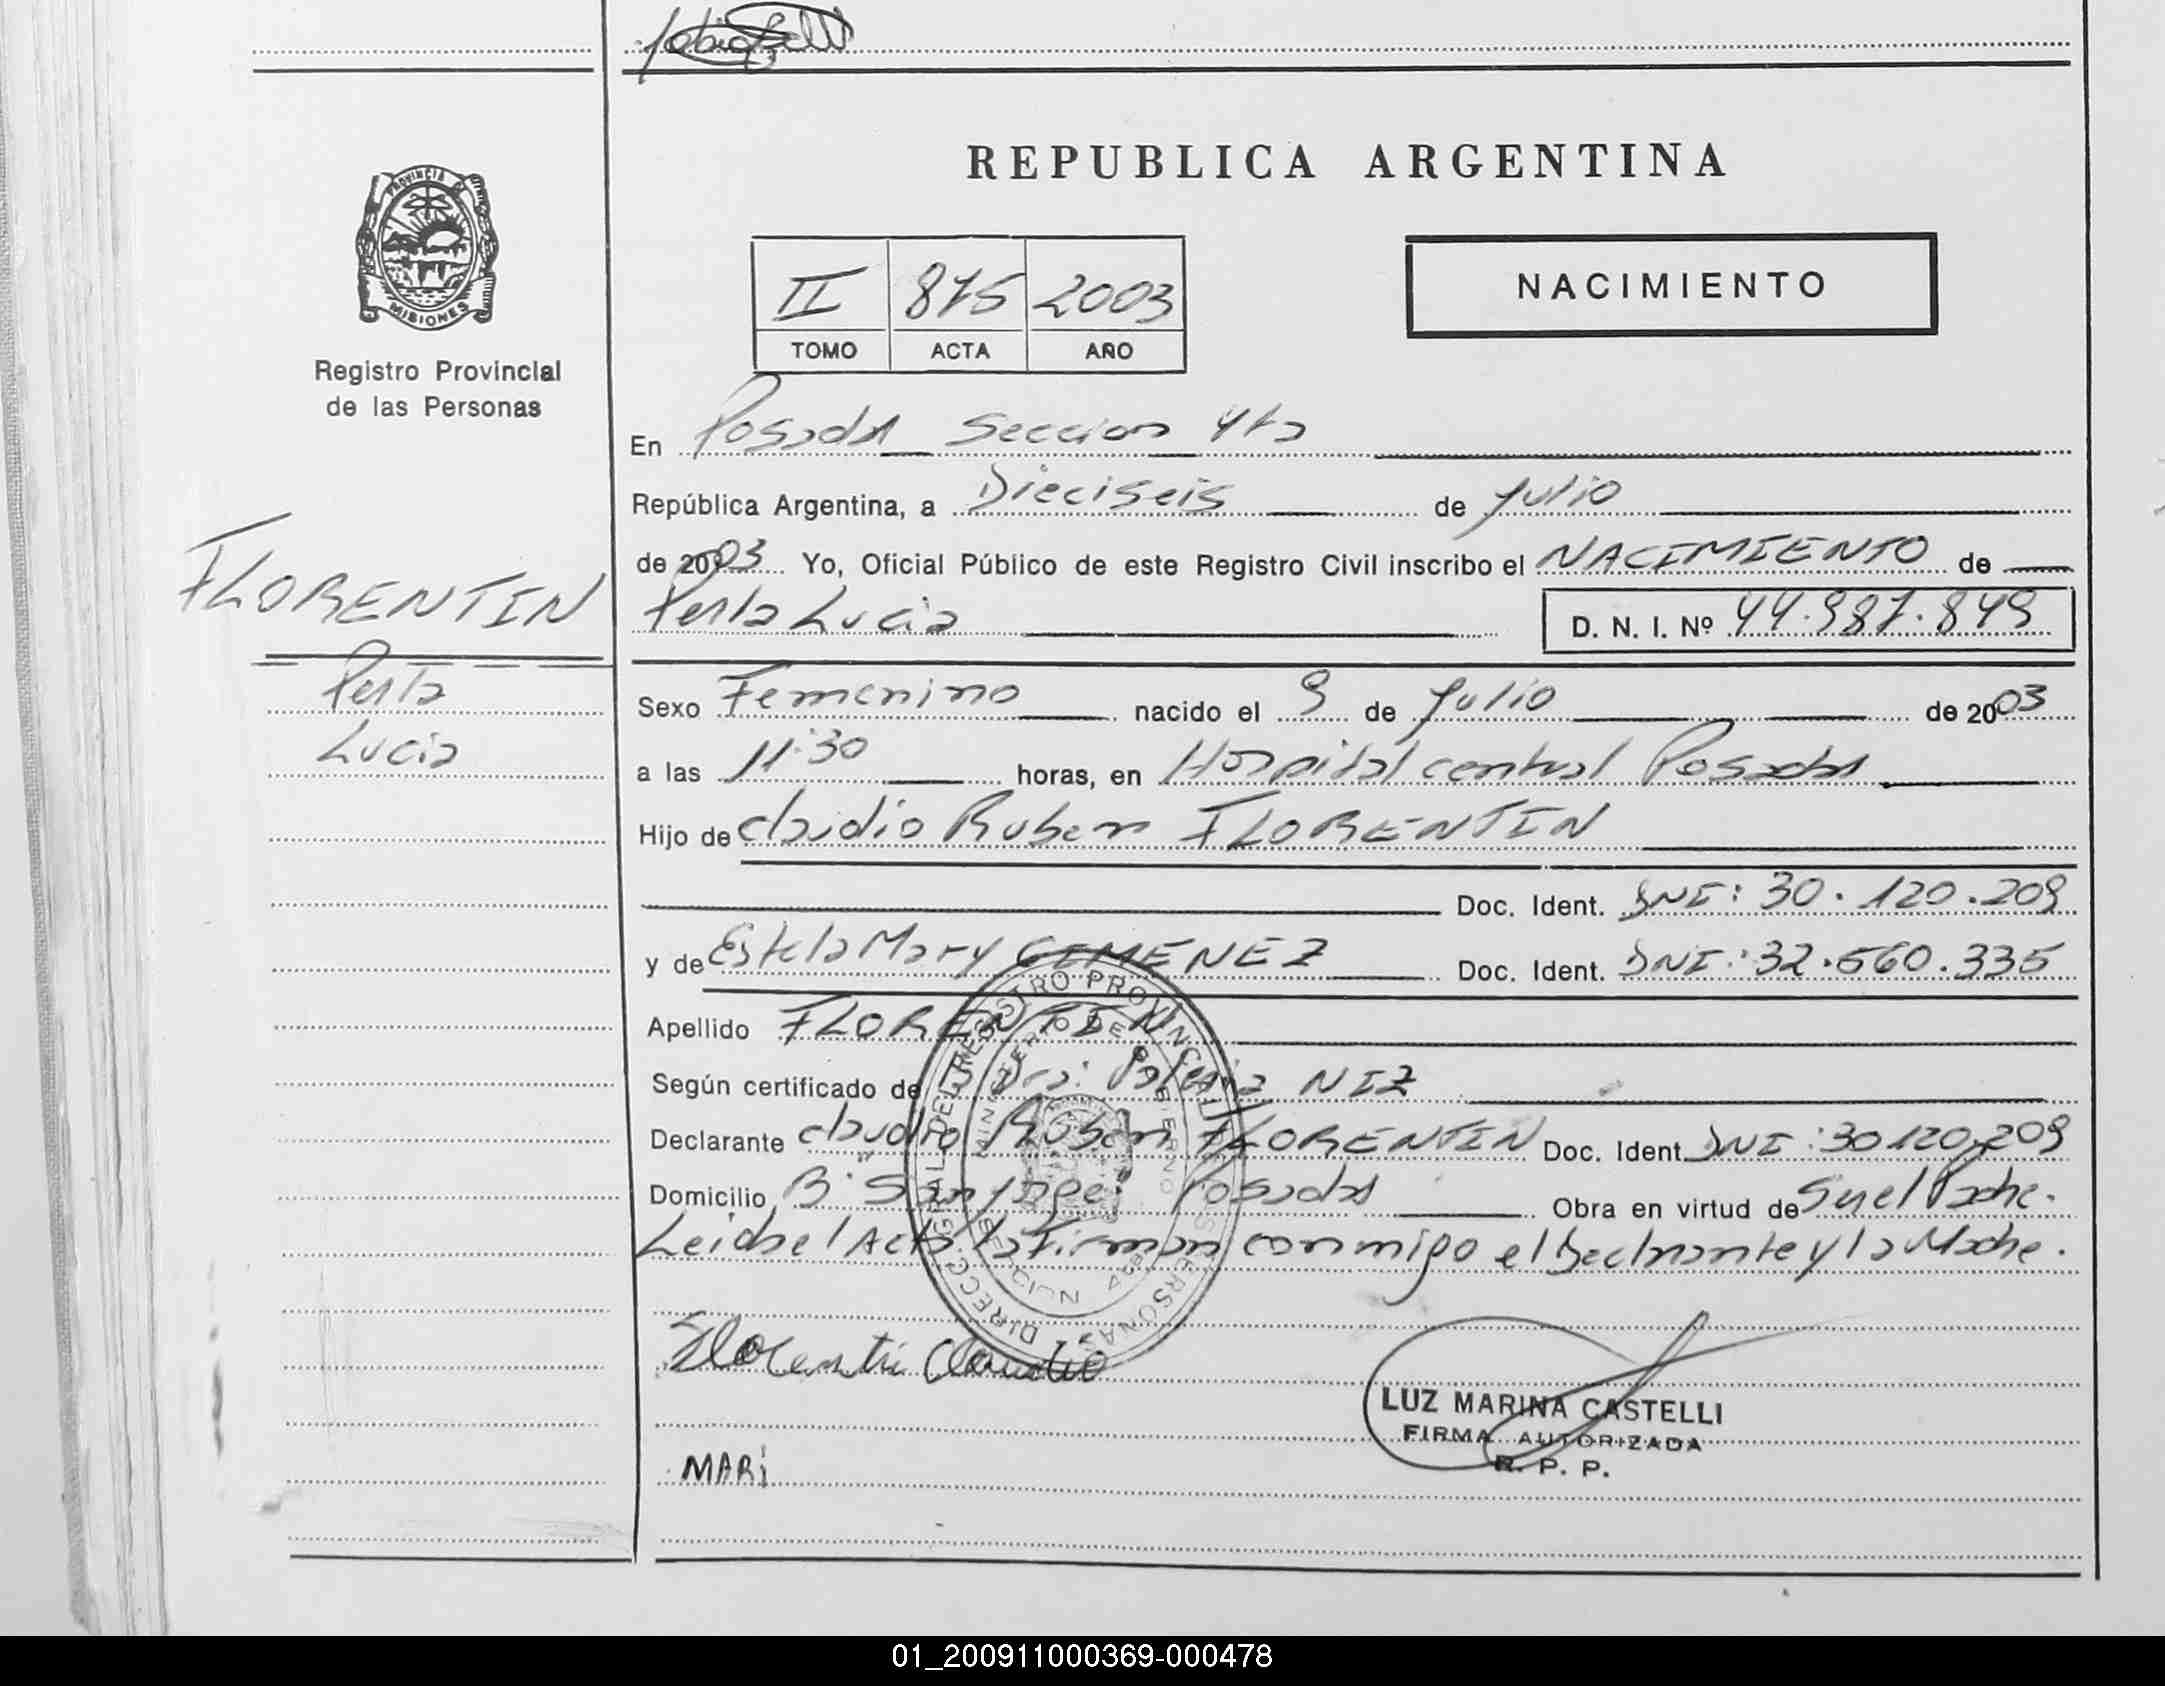 REPUBLICA ARGENTINA
PROVINCIA DE
MISIONES
Registro Provincial
de las Personas
II 875 2003
TOMO ACTA AÑO
NACIMIENTO
En Posadas Seccion 4ta
República Argentina, a Dieciseis de Julio
de 2003 Yo, Oficial Público de este Registro Civil inscribo el NACIMIENTO de
Perla Lucia D. N. I. Nº 44.987.849
FLORENTIN
Perla
Lucia
Sexo Femenino nacido el 9 de Julio de 2003
a las 11:30 horas, en Hospital central Posadas
Hijo de Claudio Ruben FLORENTIN
Doc. Ident. DNI: 30.120.209
y de Estela Mary GIMENEZ Doc. Ident. DNI: 32.560.335
Apellido FLORENTIN
Según certificado de Dra: NIZ
Declarante Claudio Ruben FLORENTIN Doc. Ident. DNI: 30120.209
Domicilio B: Posadas Obra en virtud de Ser el Padre.
Leida el Acta la Firman conmigo el Declarante y la Madre.
DIRECC. GRAL. DEL REGISTRO PROVINCIAL DE LAS PERSONAS
MINISTERIO DE GOBIERNO
Florentin Claudio
LUZ MARINA CASTELLI
FIRMA AUTORIZADA
R. P. P.
MARI
01_200911000369-000478